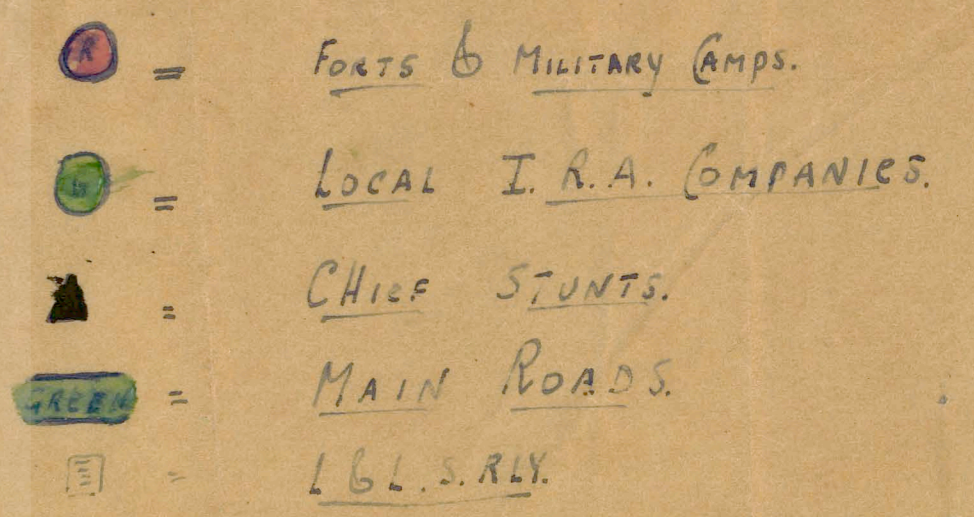 R = FORTS & MILITARY CAMPS.
G = LOCAL I. R. A. COMPANIES.
= CHIEF STUNTS.
GREEN = MAIN ROADS.
= L & L. S. RLY.